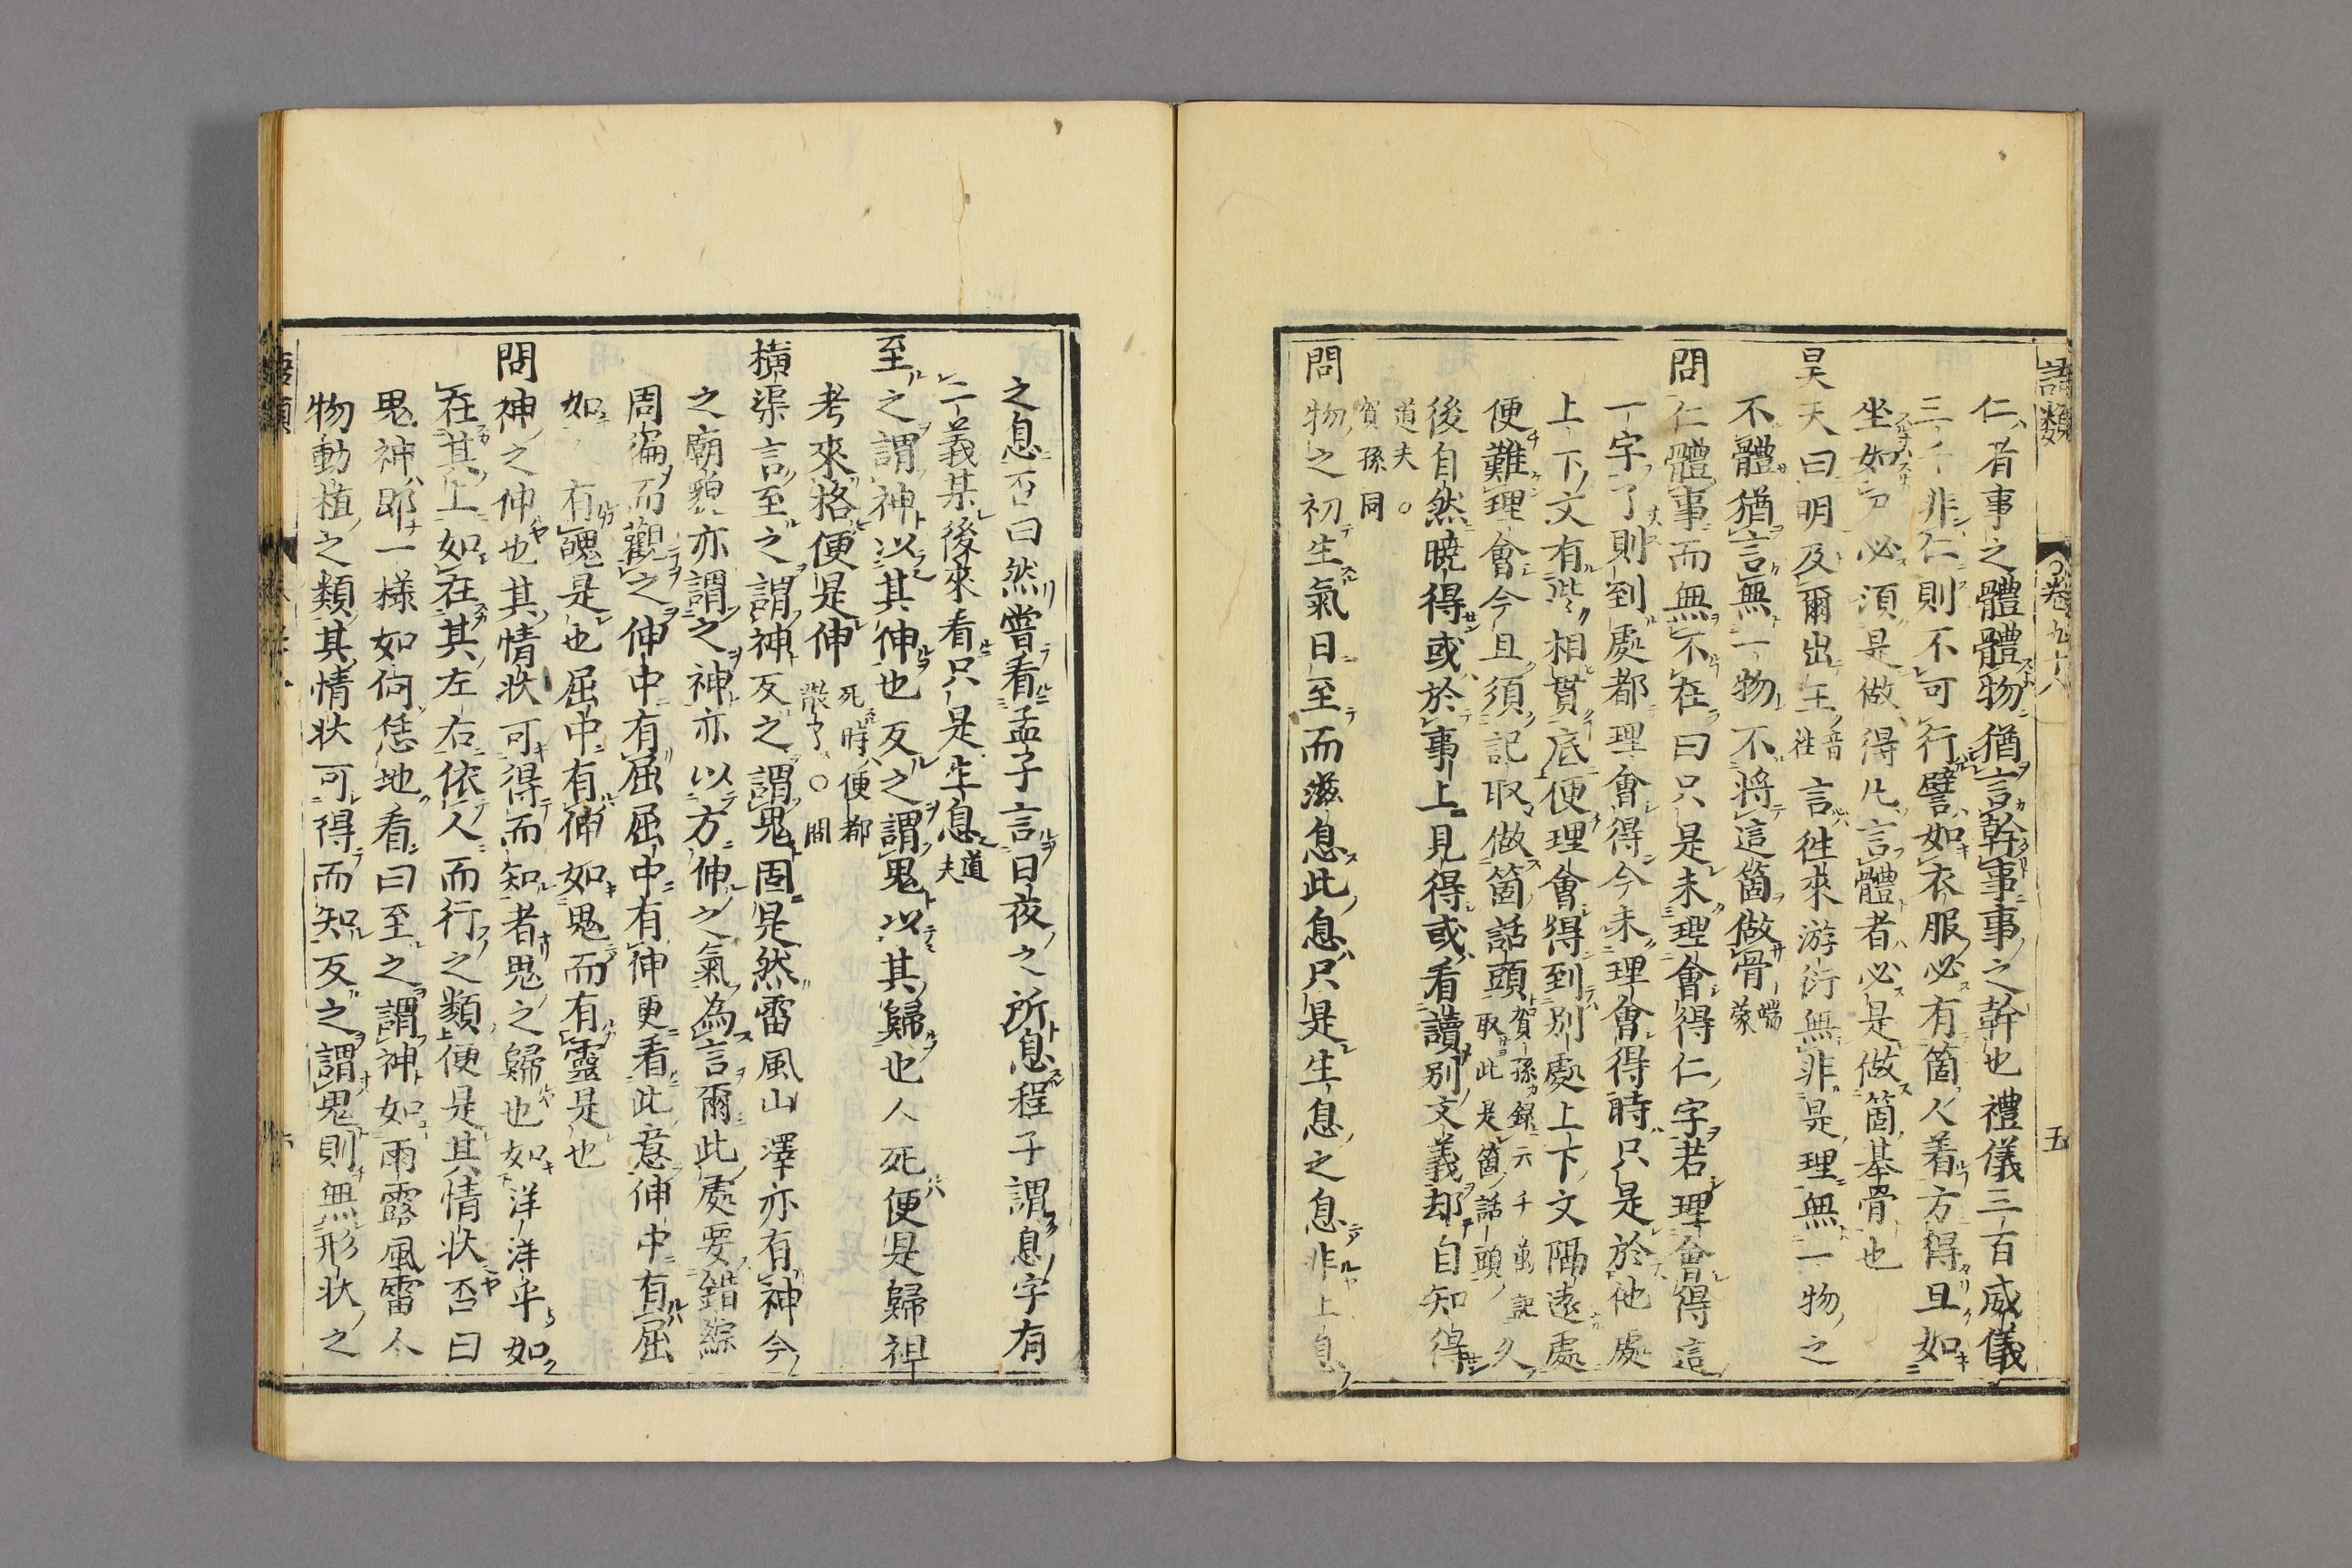 語類
卷九十八
五
仁者事之體體物猶言幹事事之幹也禮儀三百威儀
三千非仁則不可行譬如衣服必有箇人着方得且如
坐如尸必須是做得凡言體者必是做箇基骨也
昊天曰明及爾出王音往言徃來游衍無非是理無一物之
不體猶言無一物不將這箇做骨端蒙
問仁體事而無不在曰只是未理會得仁字若理會得這
一字了則到處都理會得今未理會得時只是於他處
上下文有些相貫底便理會得到別處上下文隔遠處
便難理會今且須記取做箇話頭賀孫錄云千萬記取此是箇話頭久
後自然曉得或於事上見得或看讀別文義却自知得
道夫○賀孫同
問物之初生氣日至而滋息此息只是生息之息非止息
之息否曰然嘗看孟子言日夜之所息程子謂息字有
二義某後來看只是生息道夫
至之謂神以其伸也反之謂鬼以其歸也人死便是歸祖
考來格便是伸死時便都散了○僩
橫渠言至之謂神反之謂鬼固是然雷風山澤亦有神今
之廟貌亦謂之神亦以方伸之氣為言爾此處要錯綜
周徧而觀之伸中有屈屈中有伸更看此意伸中有屈
如有魄是也屈中有伸如鬼而有靈是也
問神之伸也其情狀可得而知者鬼之歸也如洋洋乎如
在其上如在其左右依人而行之類便是其情狀否曰
鬼神即一樣如何恁地看曰至之謂神如雨露風雷人
物動植之類其情狀可得而知反之謂鬼則無形狀之